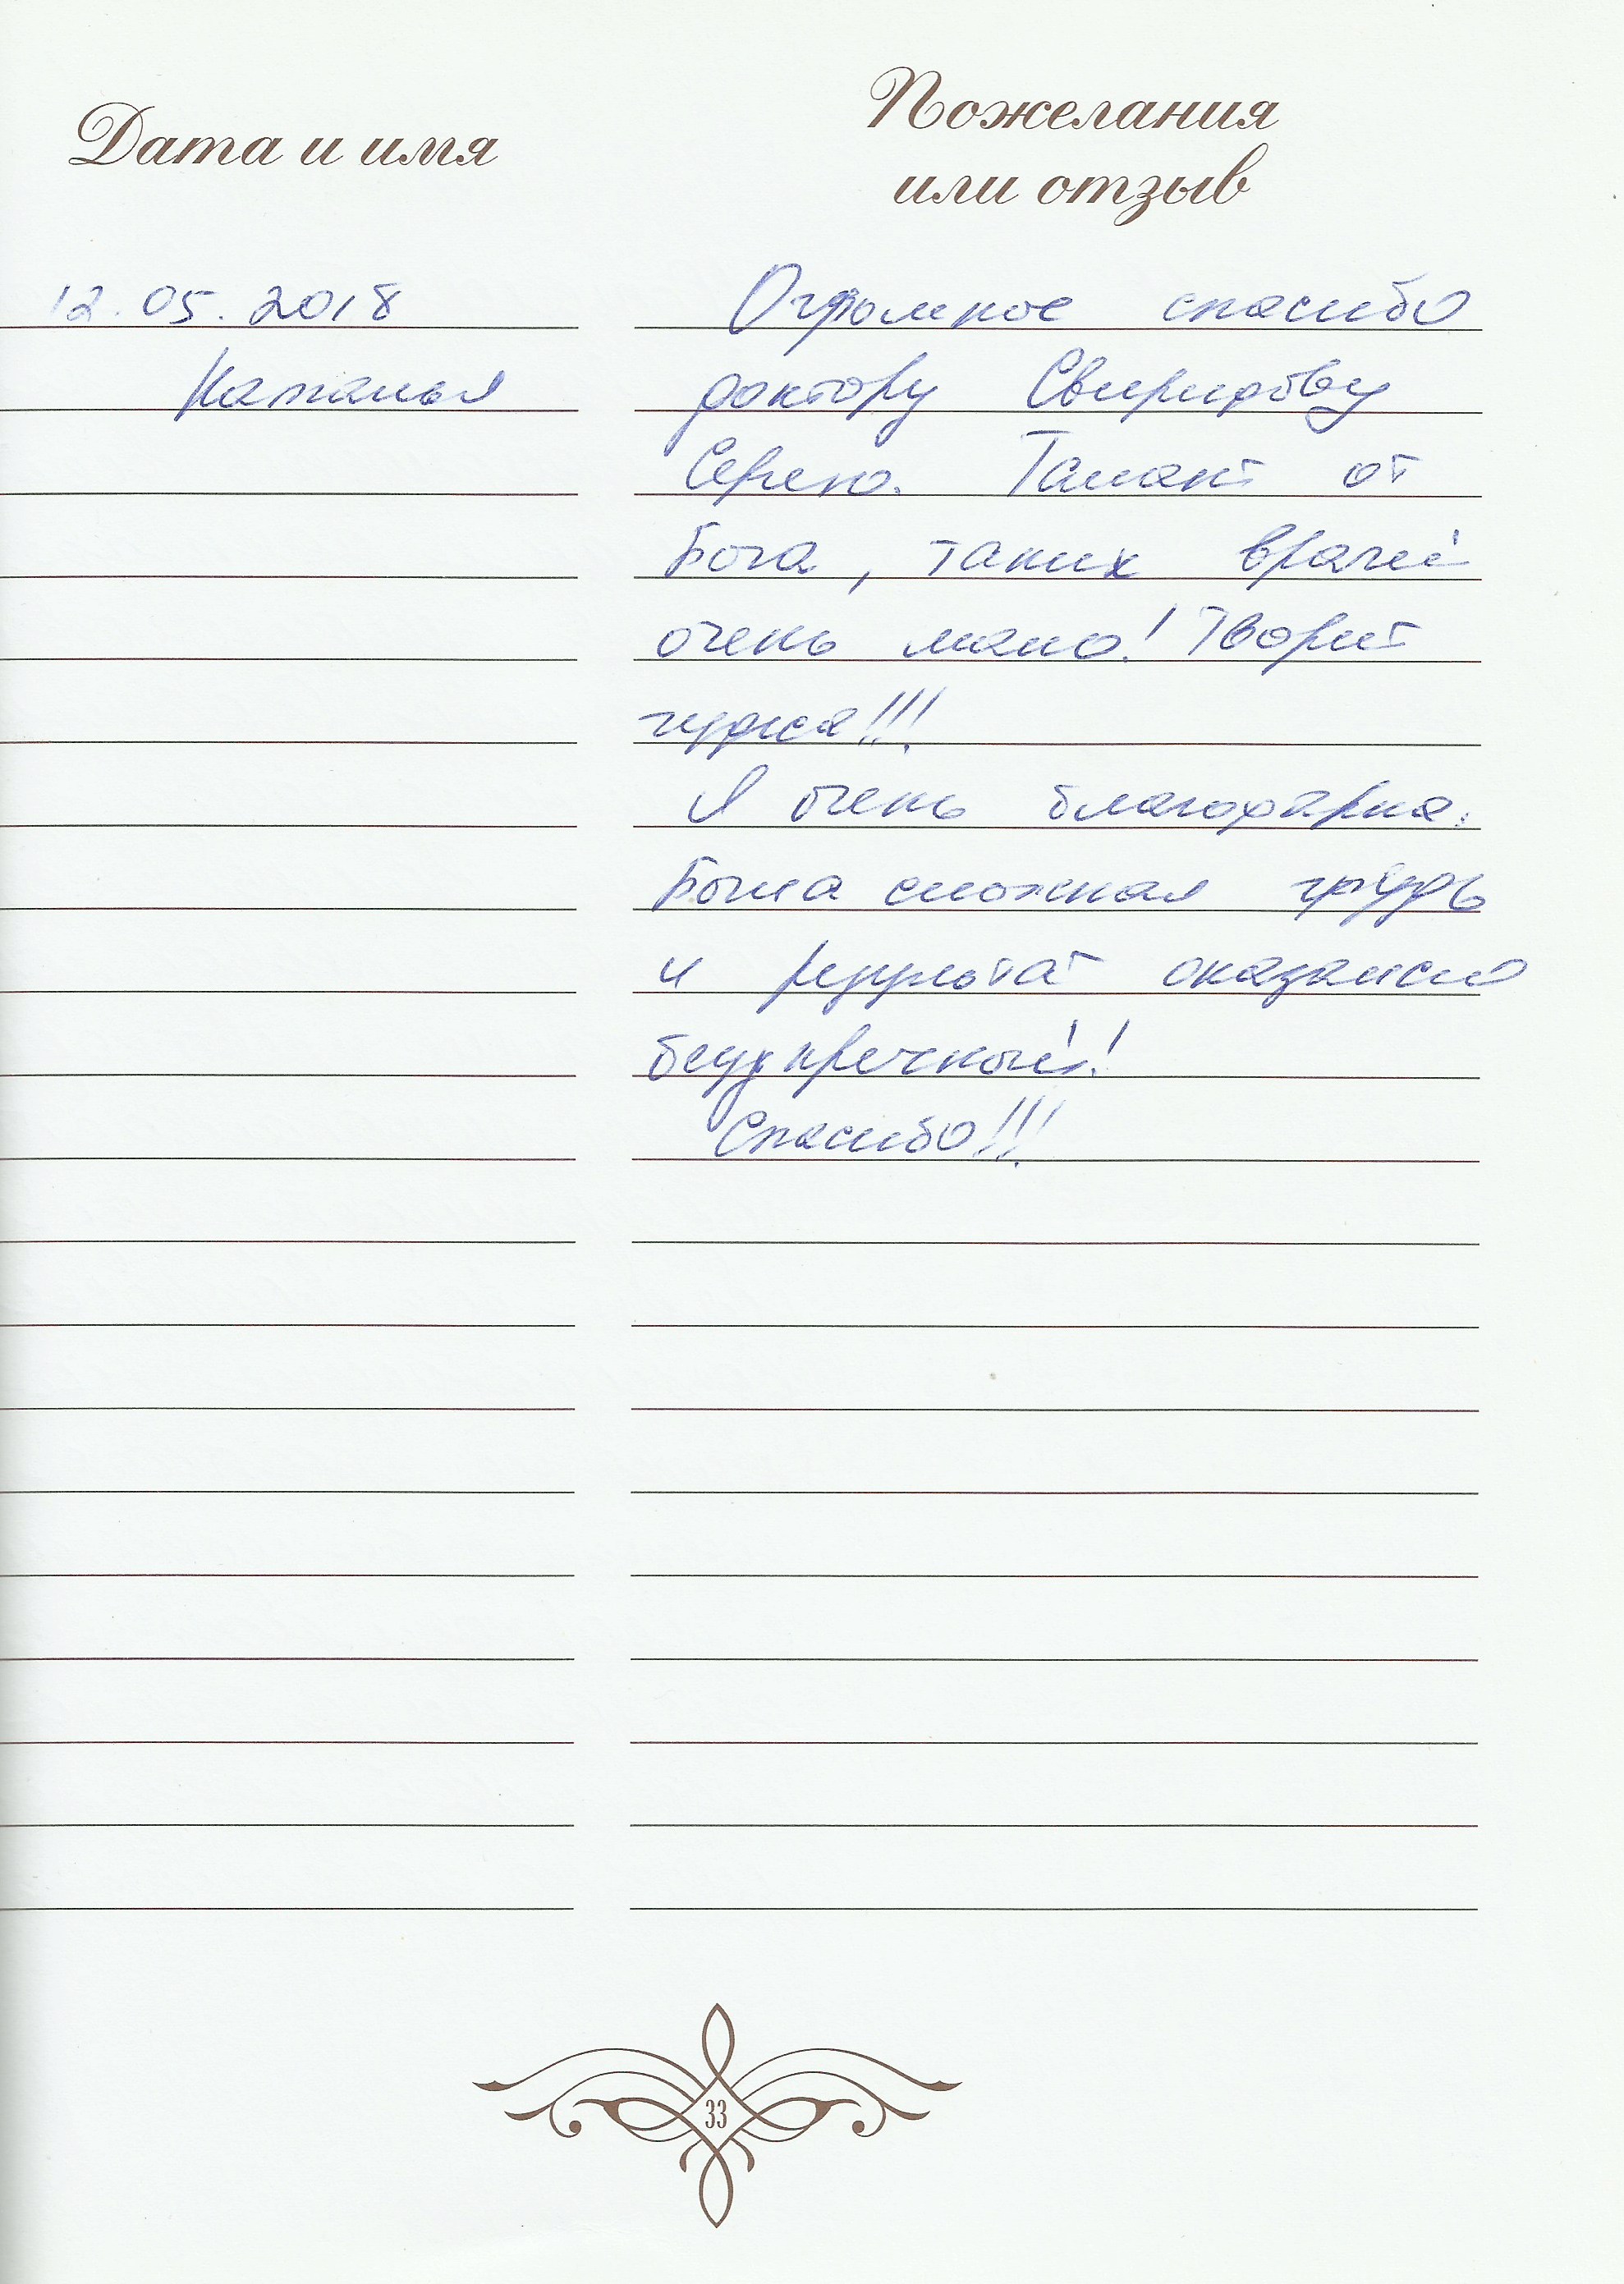 Дата и имя
Пожелания
или отзыв
12.05.2018
Наталья
Огромное спасибо
доктору Свиридову
Сергею. Талант от
Бога, таких врачей
очень мало! Творит
чудеса!!!
Я очень благодарна.
Была сложная грудь
и результат оказался
безупречный!
Спасибо!!!
33